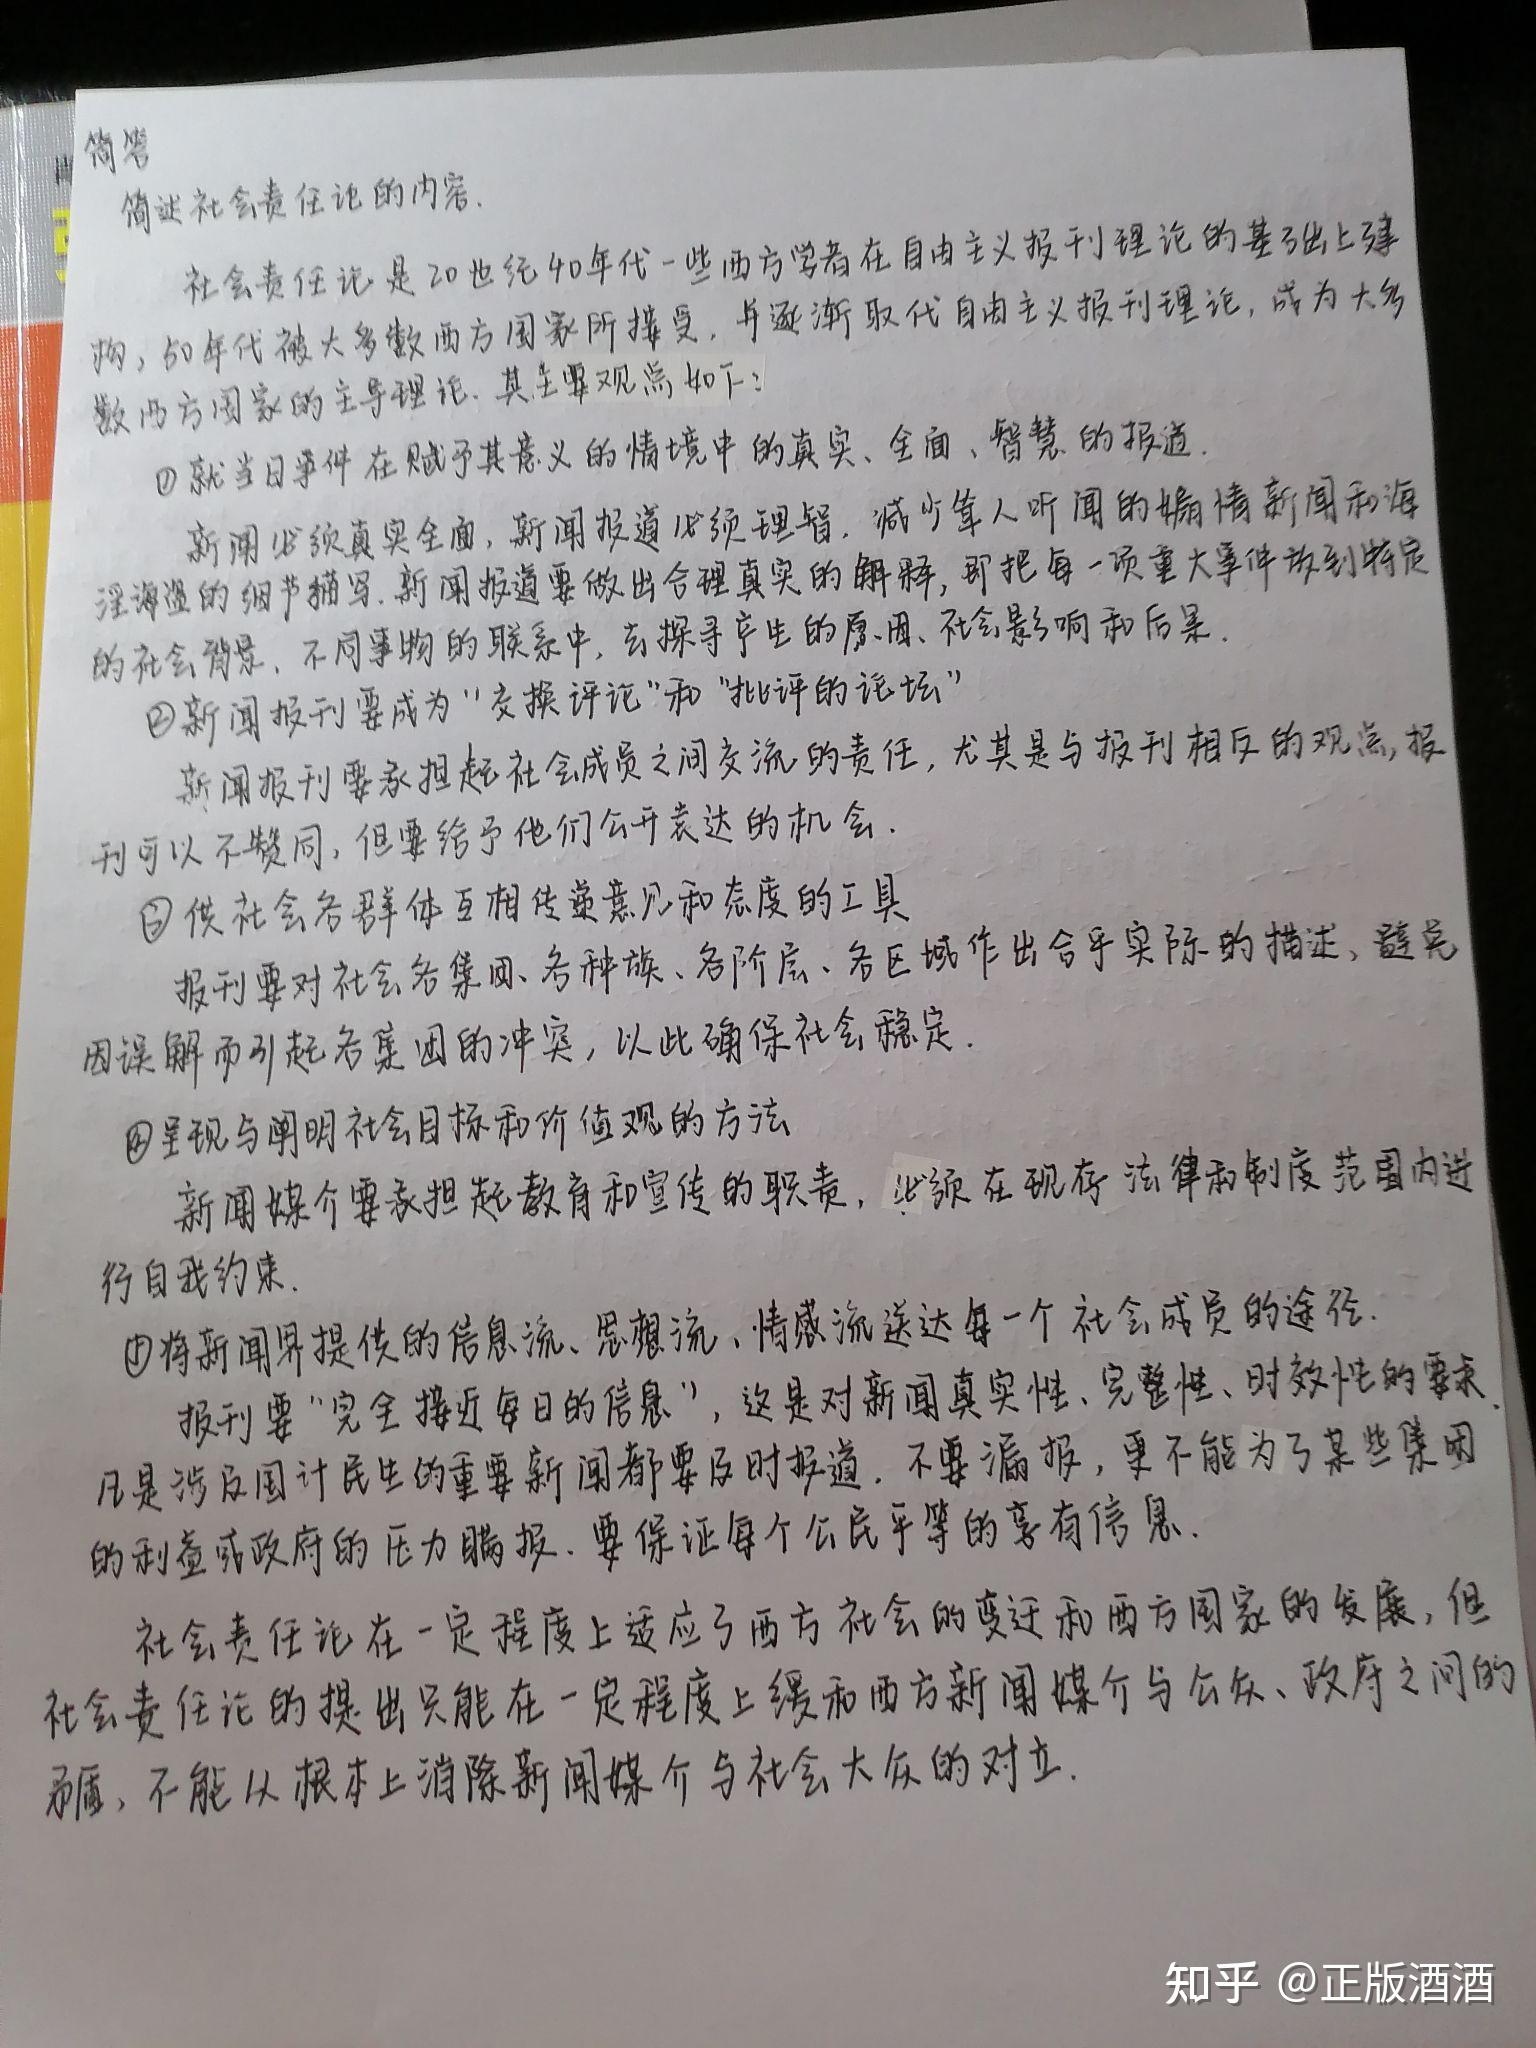 简答
简述社会责任论的内容.
社会责任论是20世纪40年代一些西方学者在自由主义报刊理论的基础上建
构,50年代被大多数西方国家所接受,并逐渐取代自由主义报刊理论,成为大多
数西方国家的主导理论.其主要观点如下:
①就当日事件在赋予其意义的情境中的真实、全面、智慧的报道.
新闻必须真实全面,新闻报道必须理智.减少耸人听闻的煽情新闻和诲
淫诲盗的细节描写.新闻报道要做出合理真实的解释,即把每一项重大事件放到特定
的社会背景、不同事物的联系中,去探寻产生的原因、社会影响和后果.
②新闻报刊要成为“交换评论”和“批评的论坛”
新闻报刊要承担起社会成员之间交流的责任,尤其是与报刊相反的观点,报
刊可以不赞同,但要给予他们公开表达的机会.
③供社会各群体互相传递意见和态度的工具
报刊要对社会各集团、各种族、各阶层、各区域作出合乎实际的描述、避免
因误解而引起各集团的冲突,以此确保社会稳定.
④呈现与阐明社会目标和价值观的方法
新闻媒介要承担起教育和宣传的职责,必须在现存法律和制度范围内进
行自我约束.
⑤将新闻界提供的信息流、思想流、情感流送达每一个社会成员的途径.
报刊要“完全接近每日的信息”,这是对新闻真实性、完整性、时效性的要求.
凡是涉及国计民生的重要新闻都要及时报道.不要漏报,更不能为了某些集团
的利益或政府的压力瞒报.要保证每个公民平等的享有信息.
社会责任论在一定程度上适应了西方社会的变迁和西方国家的发展,但
社会责任论的提出只能在一定程度上缓和西方新闻媒介与公众、政府之间的
矛盾,不能从根本上消除新闻媒介与社会大众的对立.
知乎 @正版酒酒